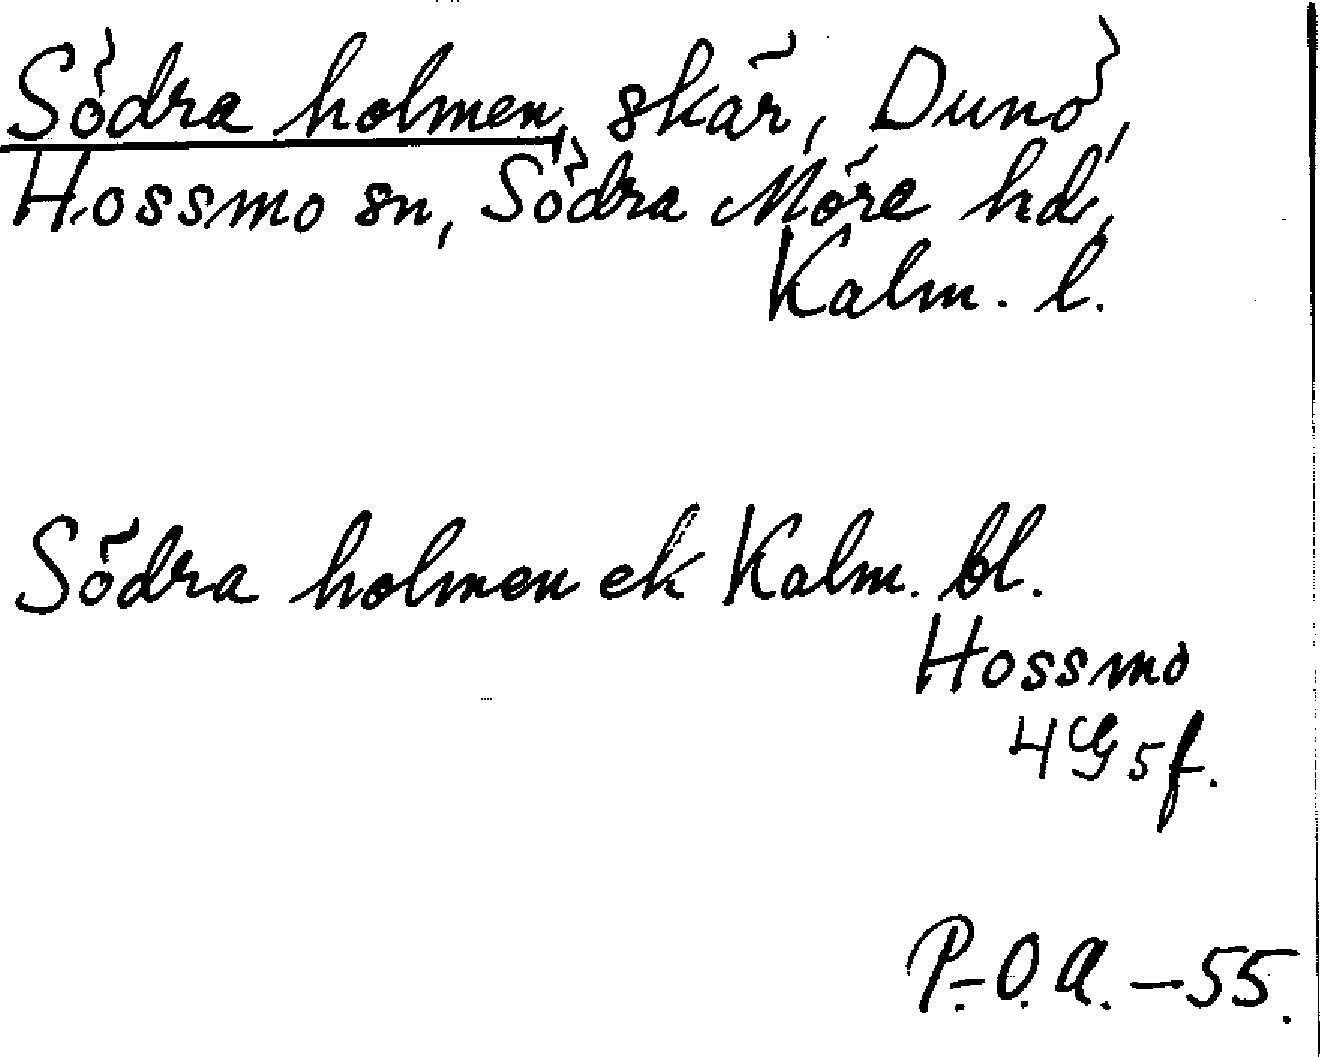 Södra holmen, skär, Dunö,
Hossmo sn, Södra Möre hd,
Kalm. l.
Södra holmen ek Kalm. bl.
Hossmo
4G5f.
P.-O.A.-55.